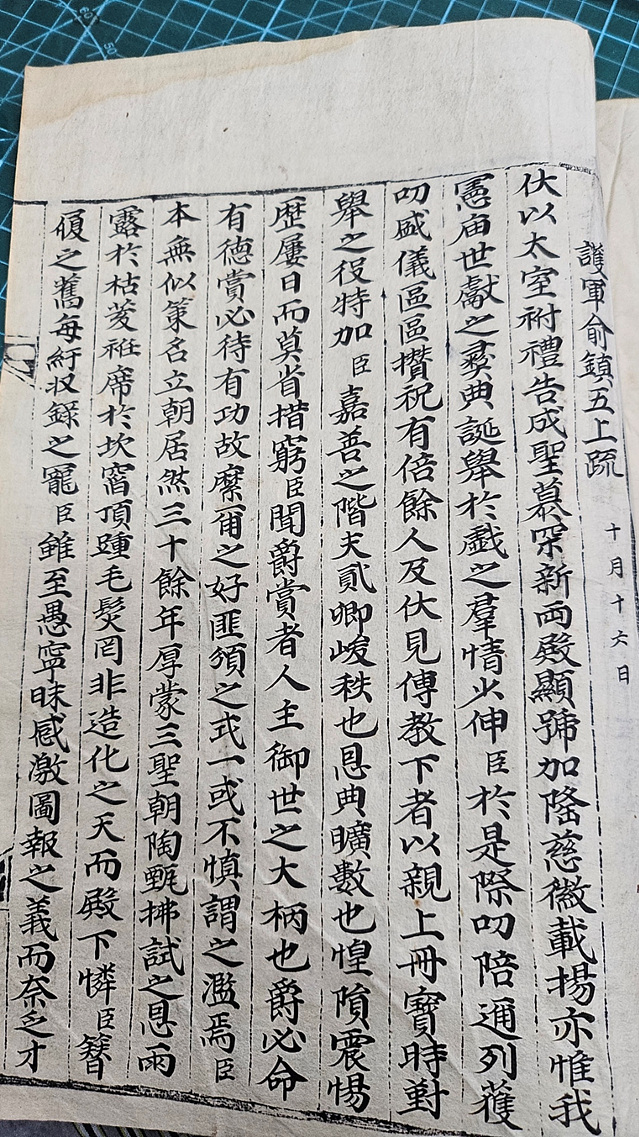 護軍俞鎮五上疏 十月十六日
伏以太室祔禮告成聖慕冞新両殿顯號加隆慈徽載揚亦惟我
憲庙世獻之彛典誕舉於戱之羣情少伸臣於是際叨陪逈列獲
叨盛儀區區攢祝有倍餘人及伏見傳教下者以親上冊寶時對
舉之役特加臣嘉善之階夫貳卿峻秩也恩典曠數也惶隕震惕
歴屢日而莫省措窮臣聞爵賞者人主御世之大柄也爵必命
有德賞必待有功故縻甭之好匪頒之式一或不慎謂之濫焉臣
本無似策名立朝居然三十餘年厚蒙三聖朝陶甄拂試之恩雨
露於枯荄袵席於坎窞頂踵毛髮罔非造化之天而殿下憐臣簪
履之舊每紆収錄之寵臣雖至愚寧昧感激圖報之義而奈乏才